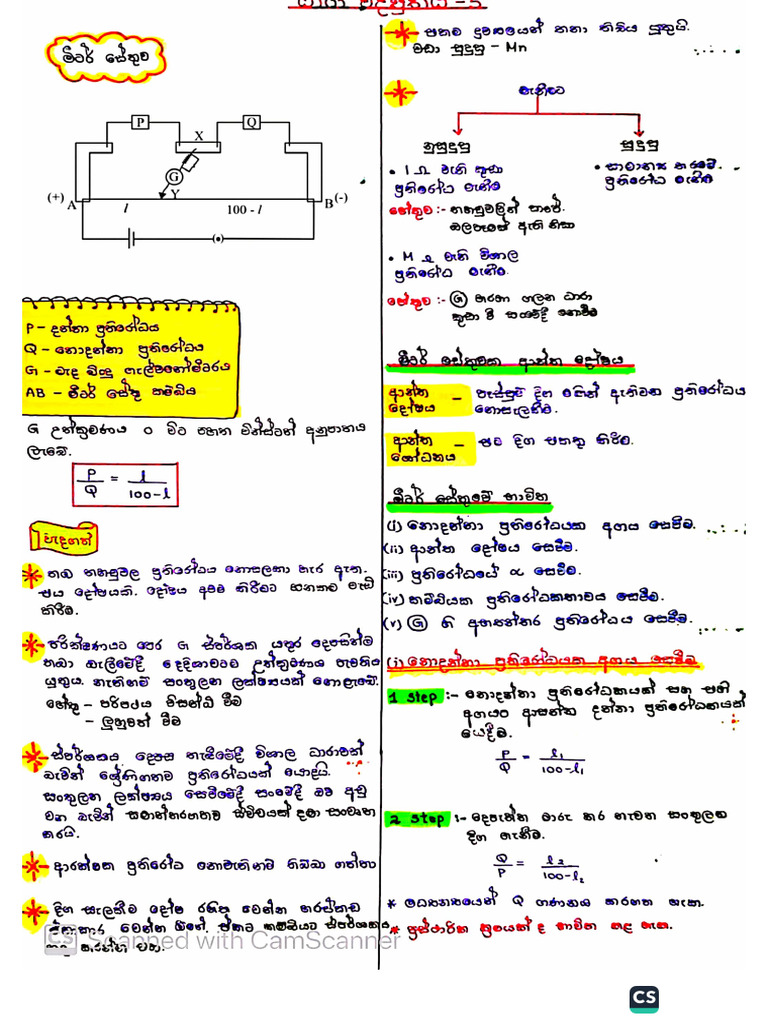 ධාරා විද්‍යුතය - 5
මීටර් සේතුව
P
Q
X
G
Y
(+)
A
l
100 - l
B
(-)
P - දන්නා ප්‍රතිරෝධය
Q - නොදන්නා ප්‍රතිරෝධය
G - මැද බිංදු ගැල්වනෝමීටරය
AB - මීටර් සේතු කම්බිය
G උත්ක්‍රමණය 0 විට පහත වින්ස්ටන් අනුපාතය
ලැබේ.
P/Q = l/100-l
වැදගත්
තඹ තහඩුවල ප්‍රතිරෝධය නොසලකා හැර ඇත.
එය දෝෂයකි. දෝෂය අවම කිරීමට ඝනකම වැඩි
කිරීම.
පරීක්ෂණයට පෙර G ස්පර්ශක යතුර දෙපසින්ම
තබා බැලීමේදී දෙදිශාවටම උත්ක්‍රමණය පැමිණිය
යුතුය. නැතිනම් සංතුලන ලක්ෂ්‍යයක් නොලැබේ.
හේතු - පරිපථය විසන්ධි වීම
- ලුහුවත් වීම
ස්පර්ශකය දෙපස තැබීමේදී විශාල ධාරාවක්
බැවින් ශ්‍රේණිගතව ප්‍රතිරෝධයක් යොදයි.
සංතුලන ලක්ෂ්‍යය සෙවීමේදී සංවේදී බව අඩු
වන බැවින් සමාන්තරගතව ස්විචයක් දමා සංවෘත
කරයි.
ආරක්ෂක ප්‍රතිරෝධ නොමැතිනම් තිබ්බා ගන්නා
දිග සැලකීම දෝෂ රහිත වෙන්න හරස්කඩ
ඒකාකාර වෙන්න ඕනේ. ඒකට කම්බියට ස්පර්ශකය
Scanned with CamScanner
සෘම දුවකයෙන් තනා තිබිය යුතුයි.
වඩා සුදුසු - Mn
මැනීමට
නුසුදුසු
සුදුසු
• 1 Ω වැනි කුඩා
ප්‍රතිරෝධ මැනීම
• සාමාන්‍ය තරමේ
ප්‍රතිරෝධ මැනීම
හේතුව :- තහඩුවලින් සෘජු
බලපෑමක් ඇති නිසා
• M Ω වැනි විශාල
ප්‍රතිරෝධ මැනීම.
හේතුව :- G හරහා ගලන ධාරා
කුඩා වී සංවේදී නොවීම
මීටර් සේතුවක ආන්ත දෝෂය
ආන්ත දෝෂය - පෑස්සුම් දිග මගින් ඇතිවන ප්‍රතිරෝධය
නොසැලකීම.
ආන්ත ශෝධනය - එම දිග එකතු කිරීම.
මීටර් සේතුවේ භාවිත
(i) නොදන්නා ප්‍රතිරෝධයක අගය සෙවීම.
(ii) ආන්ත දෝෂය සෙවීම.
(iii) ප්‍රතිරෝධයේ ∝ සෙවීම.
(iv) කම්බියක ප්‍රතිරෝධකතාවය සෙවීම.
(v) G හි අභ්‍යන්තර ප්‍රතිරෝධය සෙවීම.
(i) නොදන්නා ප්‍රතිරෝධයක අගය සෙවීම
1 step :- නොදන්නා ප්‍රතිරෝධකයක් සහ එහි
අගයට ආසන්න දන්නා ප්‍රතිරෝධකයක්
යෙදීම.
P/Q = l₁/100-l₁
2 step :- දෙපැත්ත මාරු කර නැවත සංතුලන
දිග ගැනීම.
Q/P = l₂/100-l₂
* මධ්‍යන්‍යයෙන් Q ගණනය කරගත හැක.
* ප්‍රස්ථාරික ක්‍රමයක් ද භාවිත කළ හැක.
CS